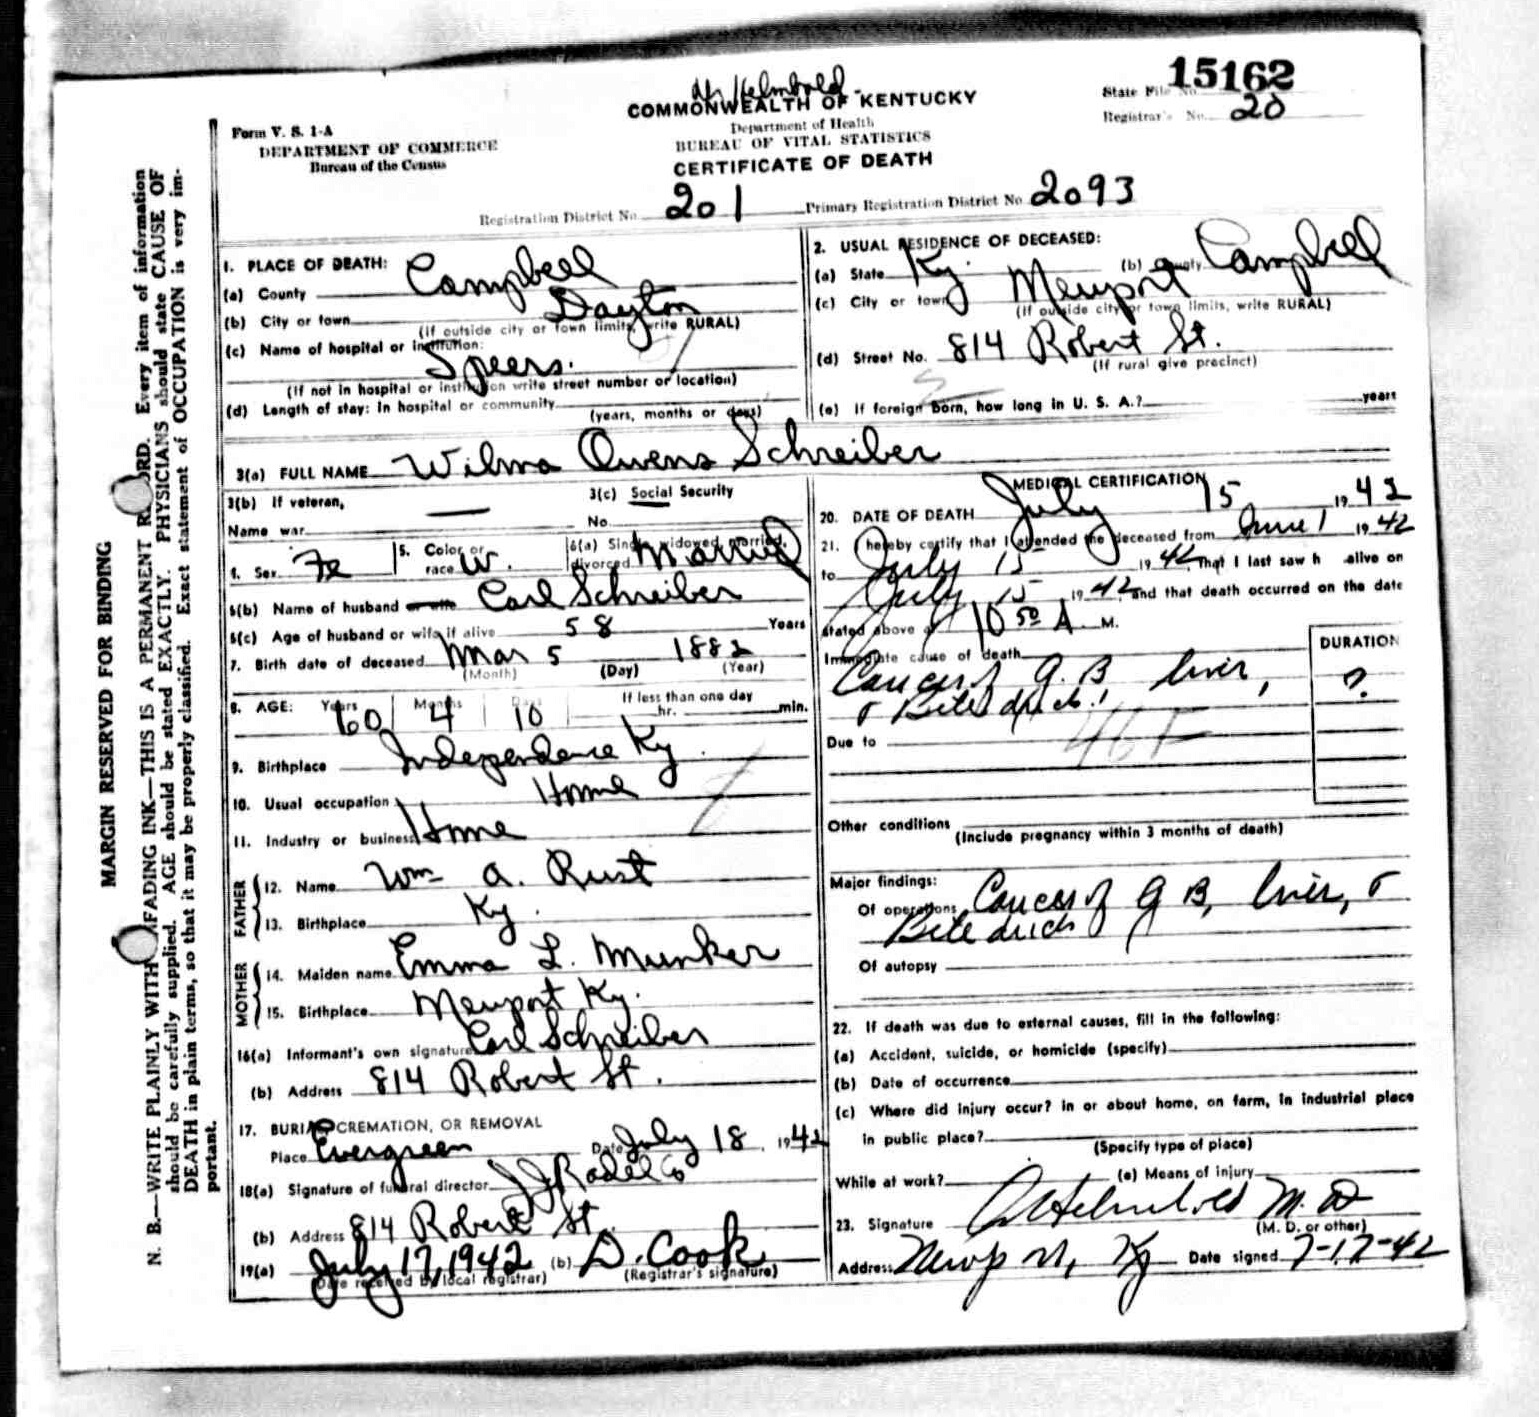 Dr Helmbold
15162
COMMONWEALTH OF KENTUCKY
State File No.
Form V. S. 1-A
Department of Health
Registrar's No. 20
DEPARTMENT OF COMMERCE
BUREAU OF VITAL STATISTICS
Bureau of the Census
CERTIFICATE OF DEATH
Registration District No. 201 Primary Registration District No 2093
MARGIN RESERVED FOR BINDING
N. B.—WRITE PLAINLY WITH UNFADING INK—THIS IS A PERMANENT RECORD. Every item of information
should be carefully supplied. AGE should be stated EXACTLY. PHYSICIANS should state CAUSE OF
DEATH in plain terms, so that it may be properly classified. Exact statement of OCCUPATION is very im-
portant.
1. PLACE OF DEATH:
(a) County Campbell
(b) City or town Dayton
(If outside city or town limits, write RURAL)
(c) Name of hospital or institution:
Speers.
(If not in hospital or institution write street number or location)
(d) Length of stay: In hospital or community
(years, months or days)
2. USUAL RESIDENCE OF DECEASED:
(a) State Ky. (b) County Campbell
(c) City or town Newport
(If outside city or town limits, write RURAL)
(d) Street No. 814 Robert St.
(If rural give precinct)
(e) If foreign born, how long in U. S. A.? years
3(a) FULL NAME Wilma Owens Schreiber
3(b) If veteran,
Name war —
3(c) Social Security
No.
4. Sex Fe
5. Color or race W.
6(a) Single, widowed, married, divorced Married
6(b) Name of husband or wife Carl Schreiber
6(c) Age of husband or wife if alive 58 Years
7. Birth date of deceased Mar 5 1882
(Month) (Day) (Year)
8. AGE: Years Months Days If less than one day
60 4 10 hr. min.
9. Birthplace Independence Ky.
10. Usual occupation Home
11. Industry or business Home
FATHER
12. Name Wm A. Rust
13. Birthplace Ky.
MOTHER
14. Maiden name Emma L. Munker
15. Birthplace Newport Ky.
16(a) Informant's own signature Carl Schreiber
(b) Address 814 Robert St.
17. BURIAL, CREMATION, OR REMOVAL
Place Evergreen Date July 18, 1942
18(a) Signature of funeral director J J Radel Co
(b) Address 814 Robert St.
19(a) July 17, 1942 (b) D. Cook
(Date received by local registrar) (Registrar's signature)
MEDICAL CERTIFICATION
20. DATE OF DEATH July 15 1942
21. I hereby certify that I attended the deceased from June 1 1942
to July 15 1942, that I last saw h alive on
July 15 1942 and that death occurred on the date
stated above at 10 50 A M.
Immediate cause of death
DURATION
Cancer of G. B liver,
& Bile ducts! ?
Due to
Other conditions
(Include pregnancy within 3 months of death)
Major findings:
Of operations Cancer of G B, liver, &
Bile ducts
Of autopsy
22. If death was due to external causes, fill in the following:
(a) Accident, suicide, or homicide (specify)
(b) Date of occurrence
(c) Where did injury occur? in or about home, on farm, in industrial place
in public place?
(Specify type of place)
While at work? (e) Means of injury
23. Signature Helmbold M. D
(M. D. or other)
Address Newport, Ky Date signed 7-17-42